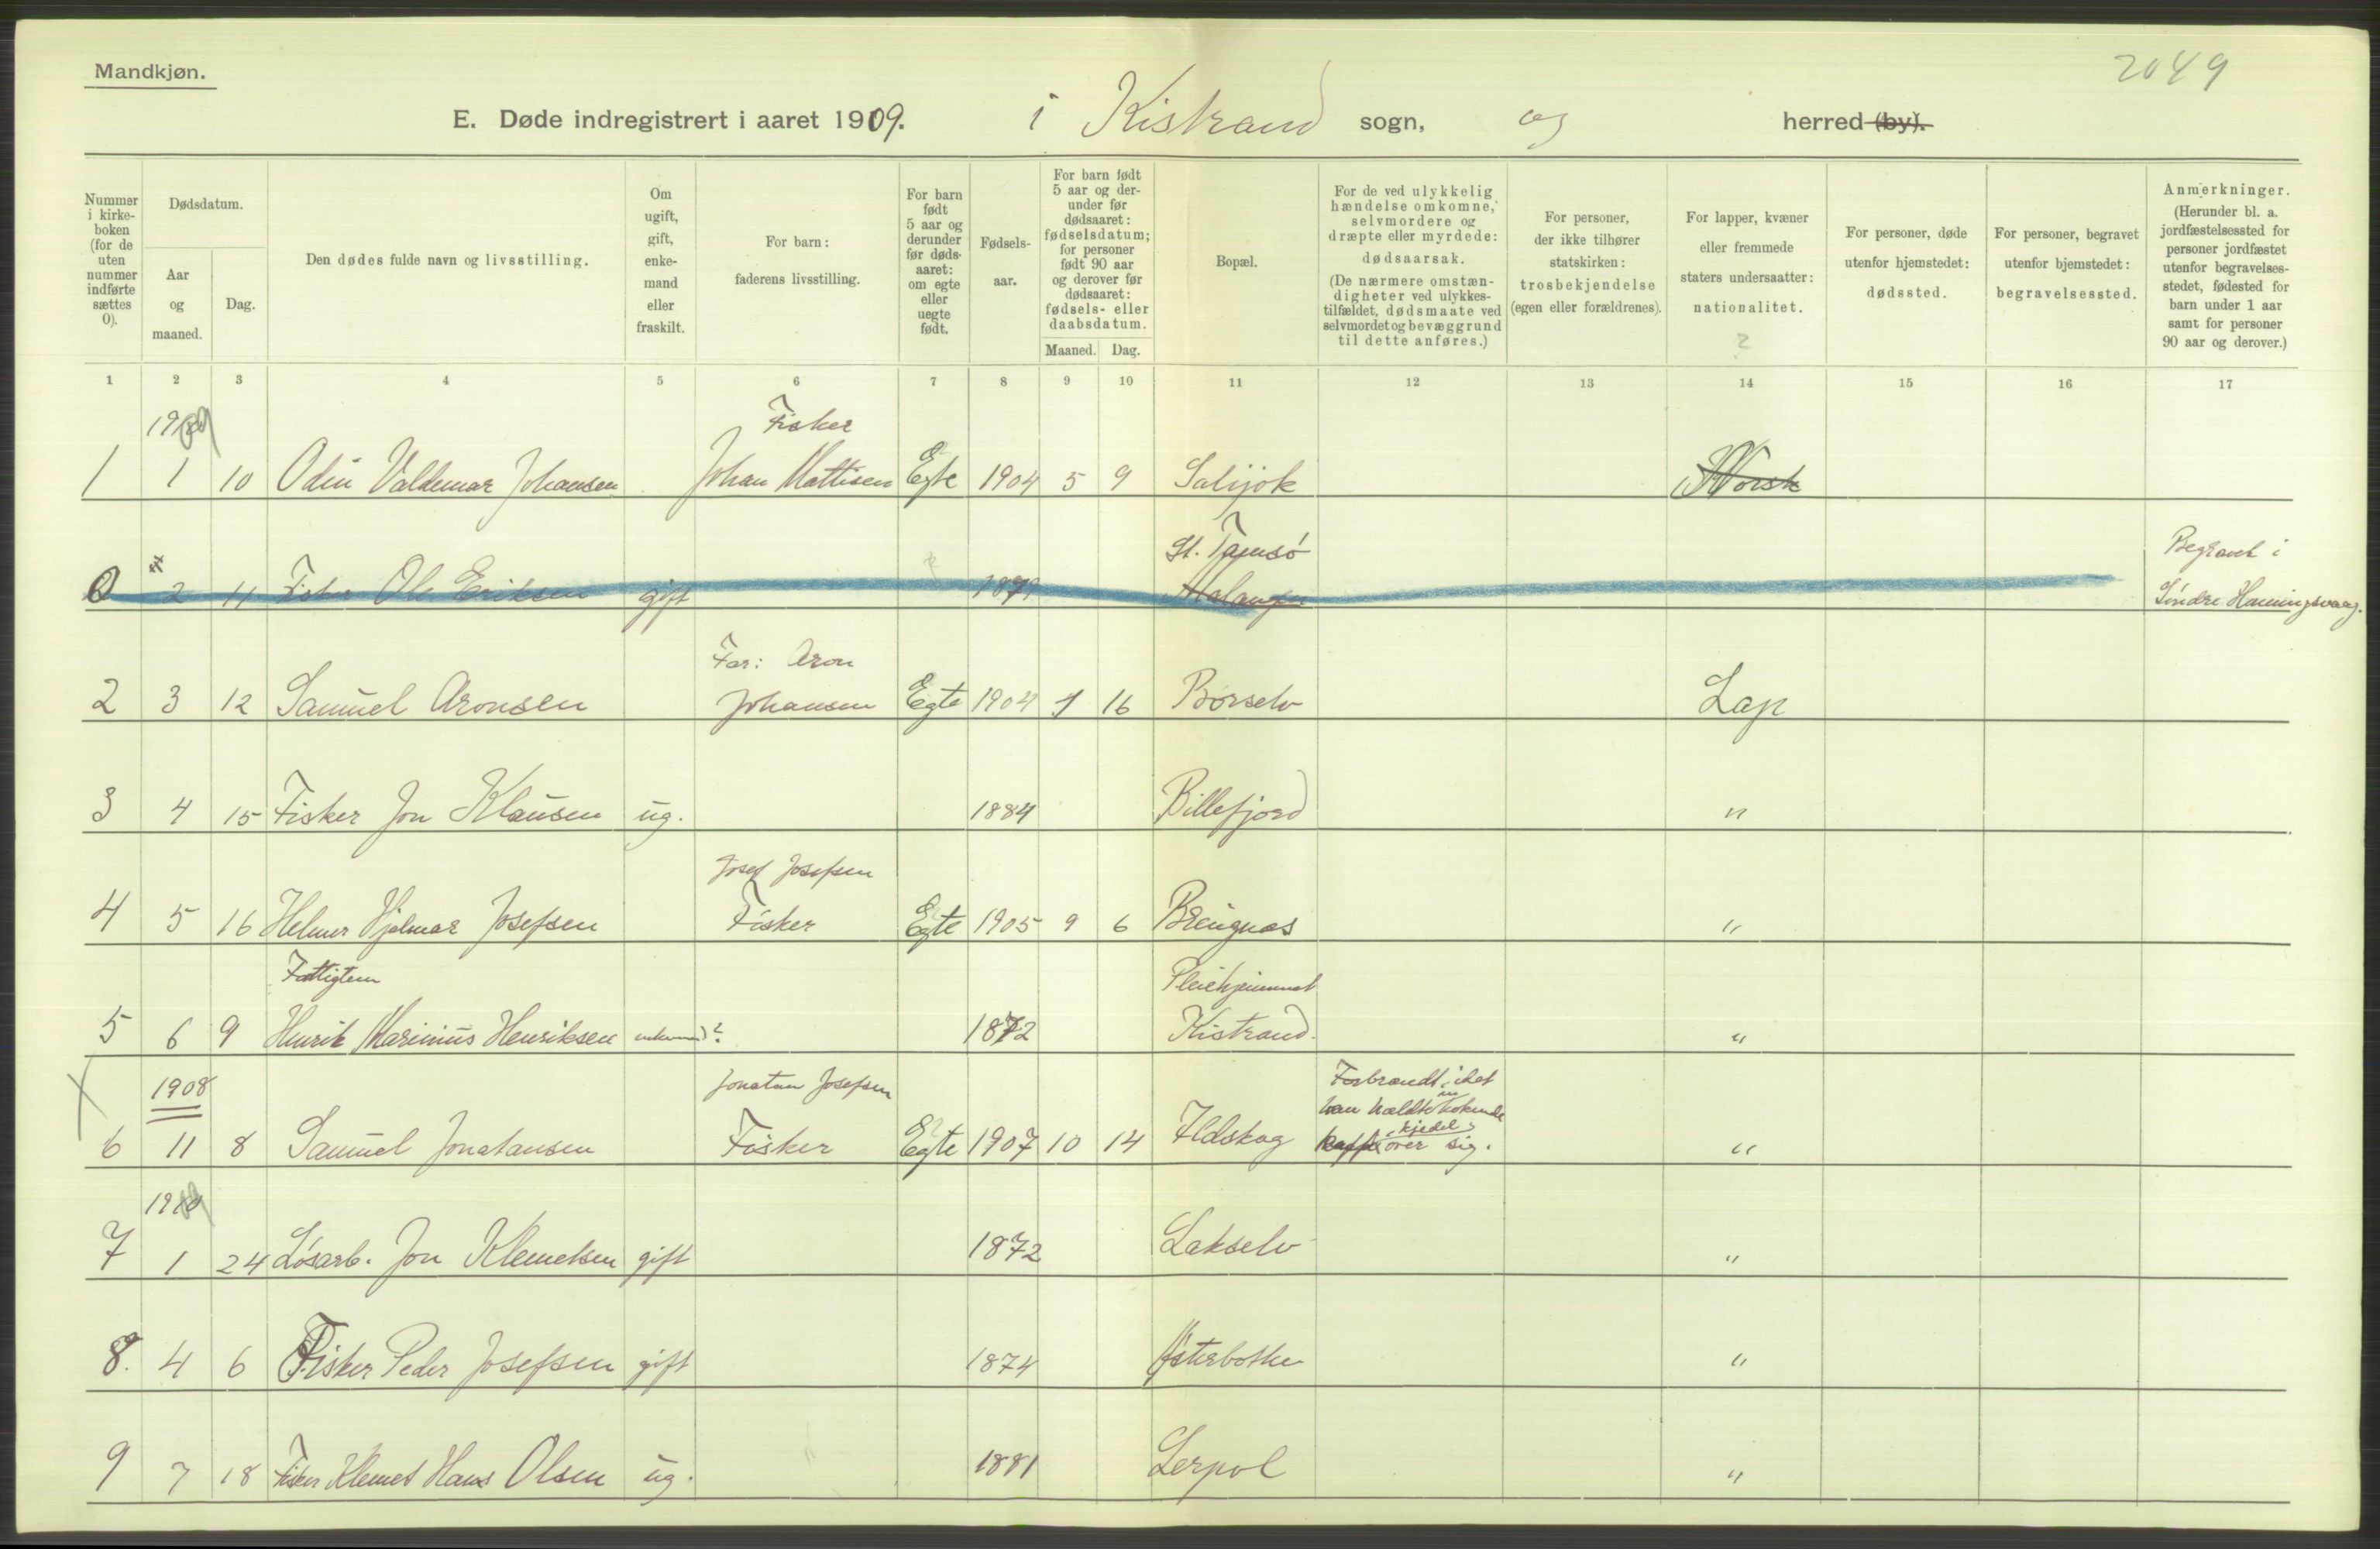 Mandkjøn.
2049
E. Døde indregistrert i aaret 1909. i Kistrand sogn, og herred (by).
Nummer i kirkeboken (for de uten nummer indførte sættes 0).
Dødsdatum.
Aar og maaned.
Dag.
Den dødes fulde navn og livsstilling.
Om ugift, gift, enkemand eller fraskilt.
For barn: faderens livsstilling.
For barn født 5 aar og derunder før dødsaaret: om egte eller uegte født.
Fødselsaar.
For barn født 5 aar og derunder før dødsaaret: fødselsdatum; for personer født 90 aar og derover før dødsaaret: fødsels- eller daabsdatum.
Maaned. Dag.
Bopæl.
For de ved ulykkelig hændelse omkomne, selvmordere og dræpte eller myrdede: dødsaarsak.
(De nærmere omstændigheter ved ulykkestilfældet, dødsmaate ved selvmordet og bevæggrund til dette anføres.)
For personer, der ikke tilhører statskirken: trosbekjendelse (egen eller forældrenes).
For lapper, kvæner eller fremmede staters undersaatter: nationalitet.
?
For personer, døde utenfor hjemstedet: dødssted.
For personer, begravet utenfor hjemstedet: begravelsessted.
Anmerkninger.
(Herunder bl. a. jordfæstelsessted for personer jordfæstet utenfor begravelsesstedet, fødested for barn under 1 aar samt for personer 90 aar og derover.)
1 2 3 4 5 6 7 8 9 10 11 12 13 14 15 16 17
1909 Fisker
1 1 10 Odin Valdemar Johansen Johan Mattisen Egte 1904 5 9 Salijok Norsk
St. Tamsø Begravet i
0 2 11 Fisker Ole Eriksen gift 1871 Malangen Søndre Honningsvaag.
Far: Aron
2 3 12 Samuel Aronsen Johansen Egte 1904 1 16 Børselv Lap
3 4 15 Fisker Jon Klausen ug. 1884 Billefjord "
Josef Josefsen
4 5 16 Helmer Hjalmar Josefsen Fisker Egte 1905 9 6 Brengnæs "
Fattiglem Pleiehjemmet
5 6 9 Henrik Marinius Henriksen enkemand? 1872 Kistrand "
1908 Jonatan Josefsen Forbrændt, idet
6 11 8 Samuel Jonatansen Fisker Egte 1907 10 14 Ildskog han hældte en kokende kaffekjedel over sig. "
1909
7 1 24 Løsarb. Jon Klemetsen gift 1872 Lakselv "
8. 4 6 Fisker Peder Josefsen gift 1874 Østerbotn "
9 7 18 Fisker Klemet Hans Olsen ug. 1881 Lerpol "